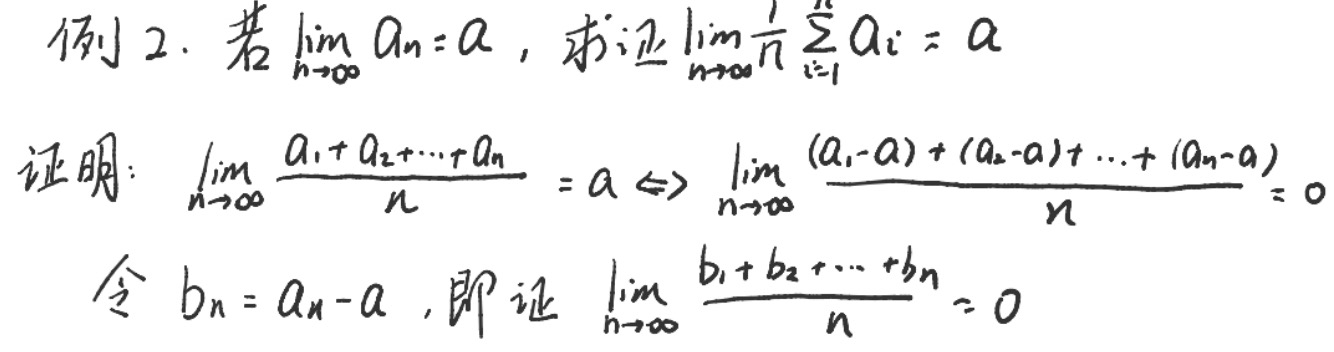 例2. 若 lim_{n→∞} aₙ = a , 求证 lim_{n→∞} 1/n ∑_{i=1}^{n} aᵢ = a
证明: lim_{n→∞} (a₁+a₂+⋯+aₙ)/n = a ⇔ lim_{n→∞} ((a₁-a)+(a₂-a)+…+(aₙ-a))/n = 0
令 bₙ = aₙ-a , 即证 lim_{n→∞} (b₁+b₂+⋯+bₙ)/n = 0